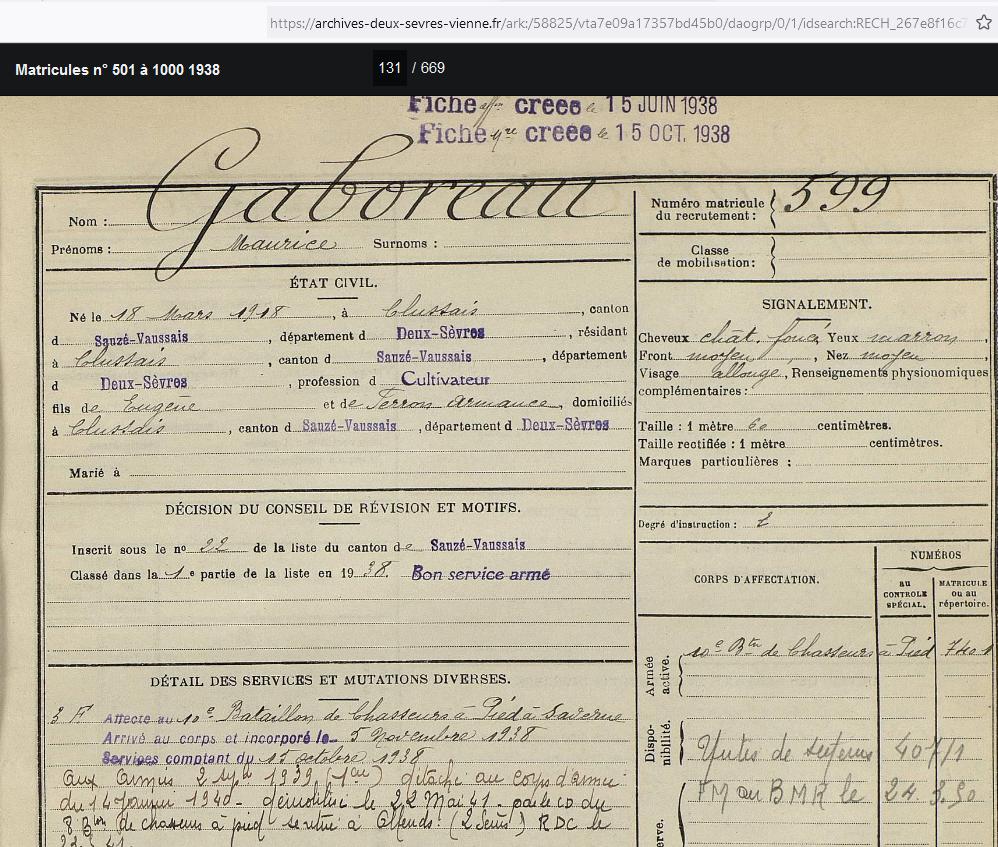 https://archives-deux-sevres-vienne.fr/ark:/58825/vta7e09a17357bd45b0/daogrp/0/1/idsearch:RECH_267e8f16c7
Matricules n° 501 à 1000 1938
131 / 669
Fiche creee le 15 JUIN 1938
Fiche creee le 15 OCT. 1938
Nom : Gaboreau
Prénoms : Maurice Surnoms :
Numéro matricule du recrutement : 599
Classe de mobilisation :
ÉTAT CIVIL.
Né le 18 Mars 1918, à Clussais, canton
d Sauzé-Vaussais, département d Deux-Sèvres, résidant
à Clussais, canton d Sauzé-Vaussais, département
d Deux-Sèvres, profession d Cultivateur
fils de Eugène et de Terron Armance, domiciliés
à Clussais, canton d Sauzé-Vaussais, département d Deux-Sèvres
Marié à
SIGNALEMENT.
Cheveux chât. foncé, Yeux marron,
Front moyen, Nez moyen,
Visage allongé, Renseignements physionomiques
complémentaires :
Taille : 1 mètre 60 centimètres.
Taille rectifiée : 1 mètre centimètres.
Marques particulières :
Degré d'instruction : 2
DÉCISION DU CONSEIL DE RÉVISION ET MOTIFS.
Inscrit sous le nº 22 de la liste du canton de Sauzé-Vaussais
Classé dans la 1e partie de la liste en 1938. Bon service armé
CORPS D'AFFECTATION.
NUMÉROS
au CONTROLE SPÉCIAL.
MATRICULE ou au répertoire.
Armée active.
10e Btn de Chasseurs à Pied 7401
Disponibilité.
407/1
FM au BMR le 24.3.50
erve.
DÉTAIL DES SERVICES ET MUTATIONS DIVERSES.
Affecté au 10e Bataillon de Chasseurs à Pied à Saverne
Arrivé au corps et incorporé le 5 Novembre 1938
Services comptant du 15 octobre 1938
Aux Armées 2 Sept 1939 détaché au corps d'armée
du 14 Janvier 1940 - démobilisé le 22 Mai 41 - par le CD du
8 Bon de chasseurs à pied - se retire à RDC le